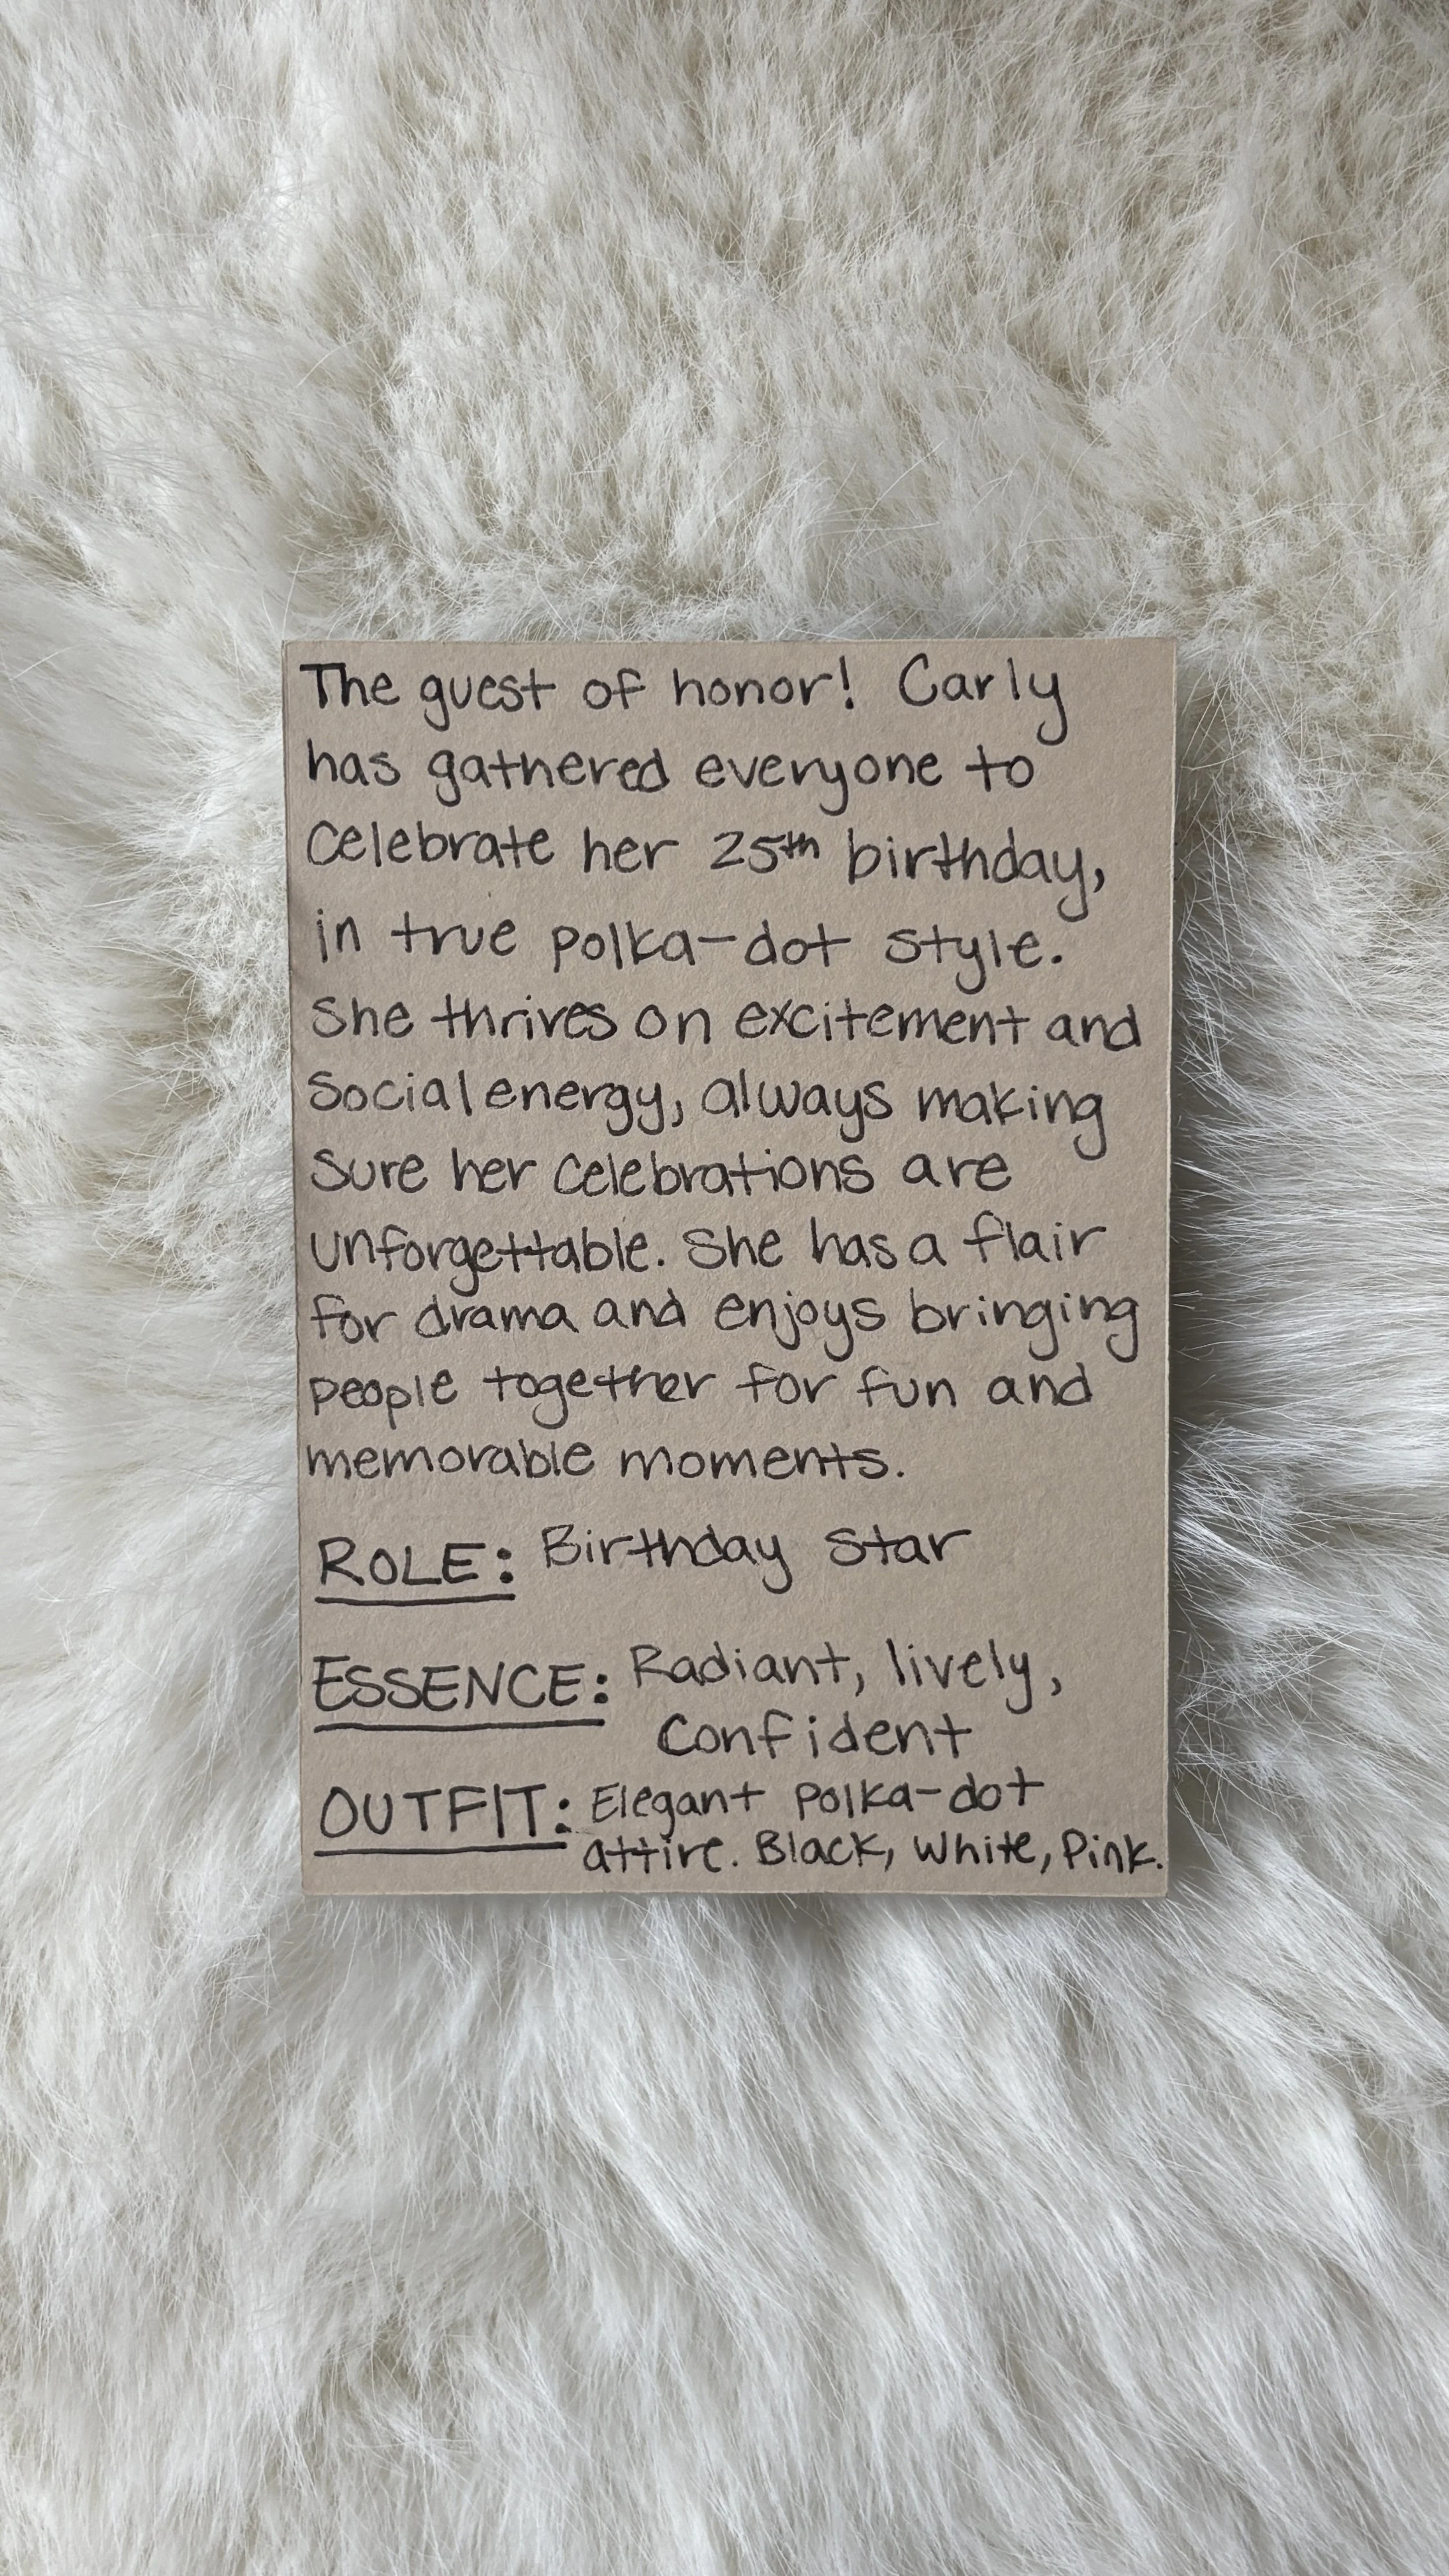 The guest of honor! Carly
has gathered everyone to
celebrate her 25th birthday,
in true polka-dot style.
She thrives on excitement and
social energy, always making
sure her celebrations are
unforgettable. She has a flair
for drama and enjoys bringing
people together for fun and
memorable moments.
ROLE: Birthday Star
ESSENCE: Radiant, lively,
confident
OUTFIT: Elegant polka-dot
attire. Black, White, Pink.